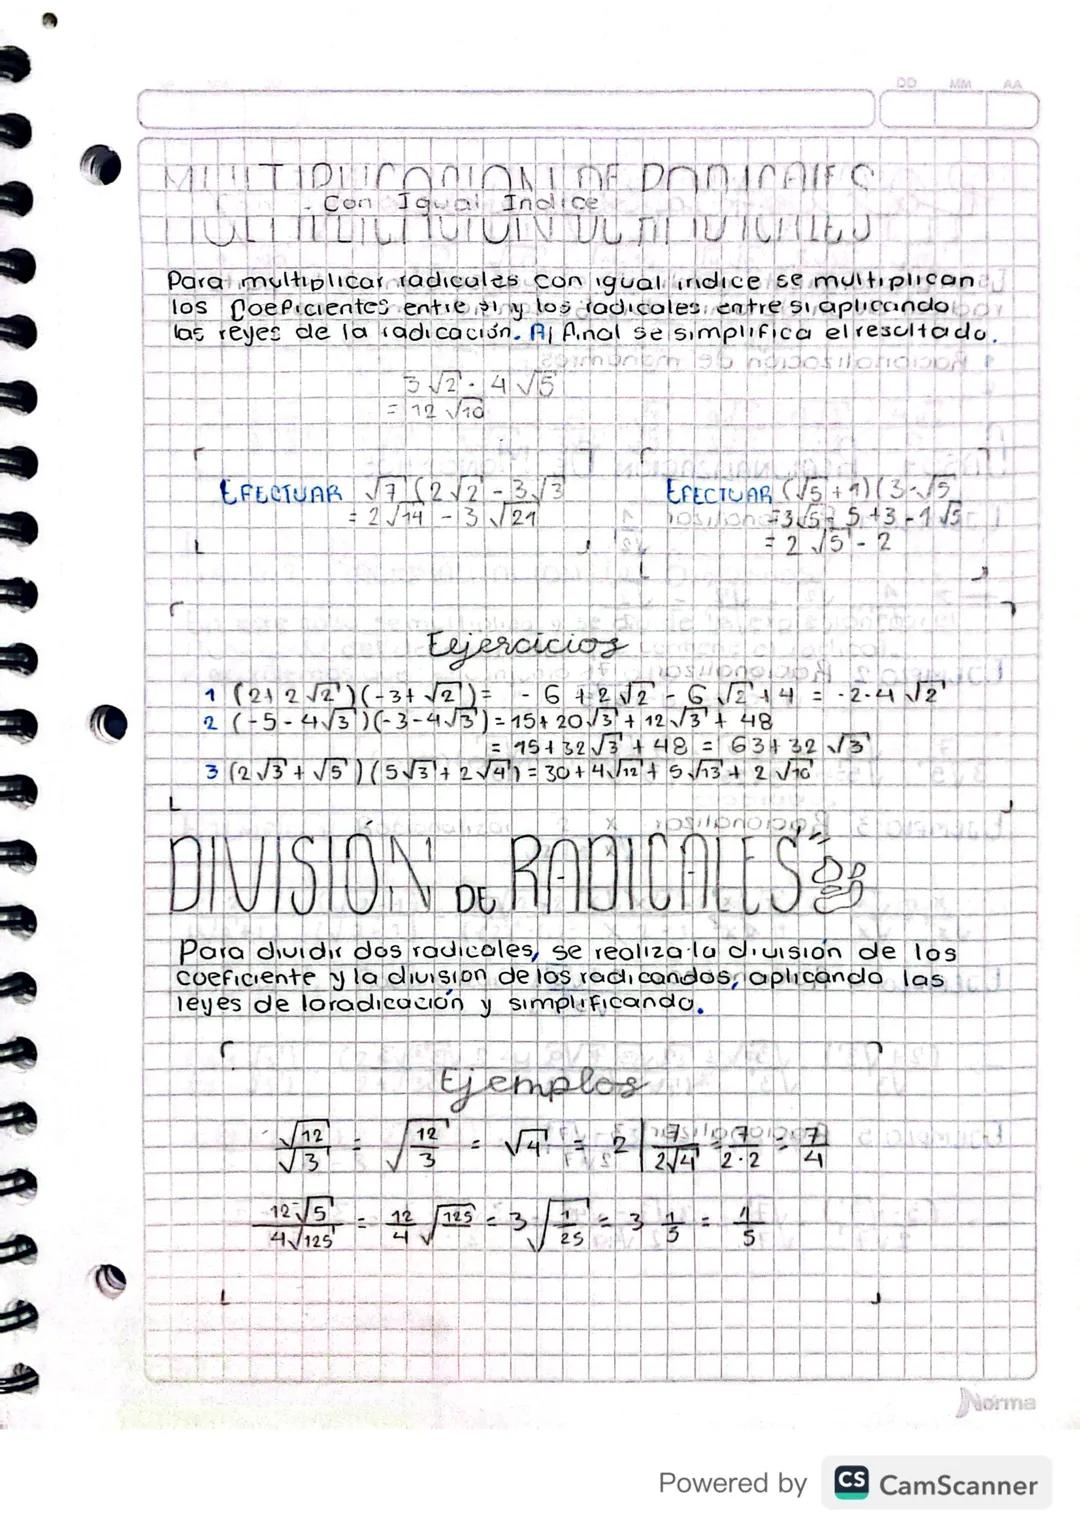 DD MM AA
MULTIPLICACION DE RADICALES
- Con Igual Indice
Para multiplicar radicales con igual indice se multiplican
los Coeficientes entre si y los radicales entre si aplicando
las reyes de la radicación. Al final se simplifica el resultado.
3√2 · 4√5
= 12√10
EFECTUAR √7 (2√2 - 3√3
= 2√14 - 3√21
EFECTUAR (√5 + 1)(3-√5
=3√5-5+3-1√5
= 2√5 - 2
Eejercicios
1 (2+2√2)(-3+√2)= -6+2√2 - 6√2+4 = -2-4√2
2 (-5-4√3)(-3-4√3)=15+20√3+12√3+48
= 15+32√3+48 = 63+32√3
3 (2√3+√5)(5√3+2√4)=30+4√12+5√13+2√10
DIVISIÓN DE RADICALES
Para dividir dos radicales, se realiza la división de los
coeficiente y la division de los radicandos, aplicando las
leyes de la radicación y simplificando.
Ejemplos
√12/√3 = √12/3 = √4 = 2 | 7/2√4 = 7/2·2 = 7/4
12√5/4√125 = 12/4 √125 = 3√1/25 = 3 1/5 = 1/5
Norma
Powered by CS CamScanner